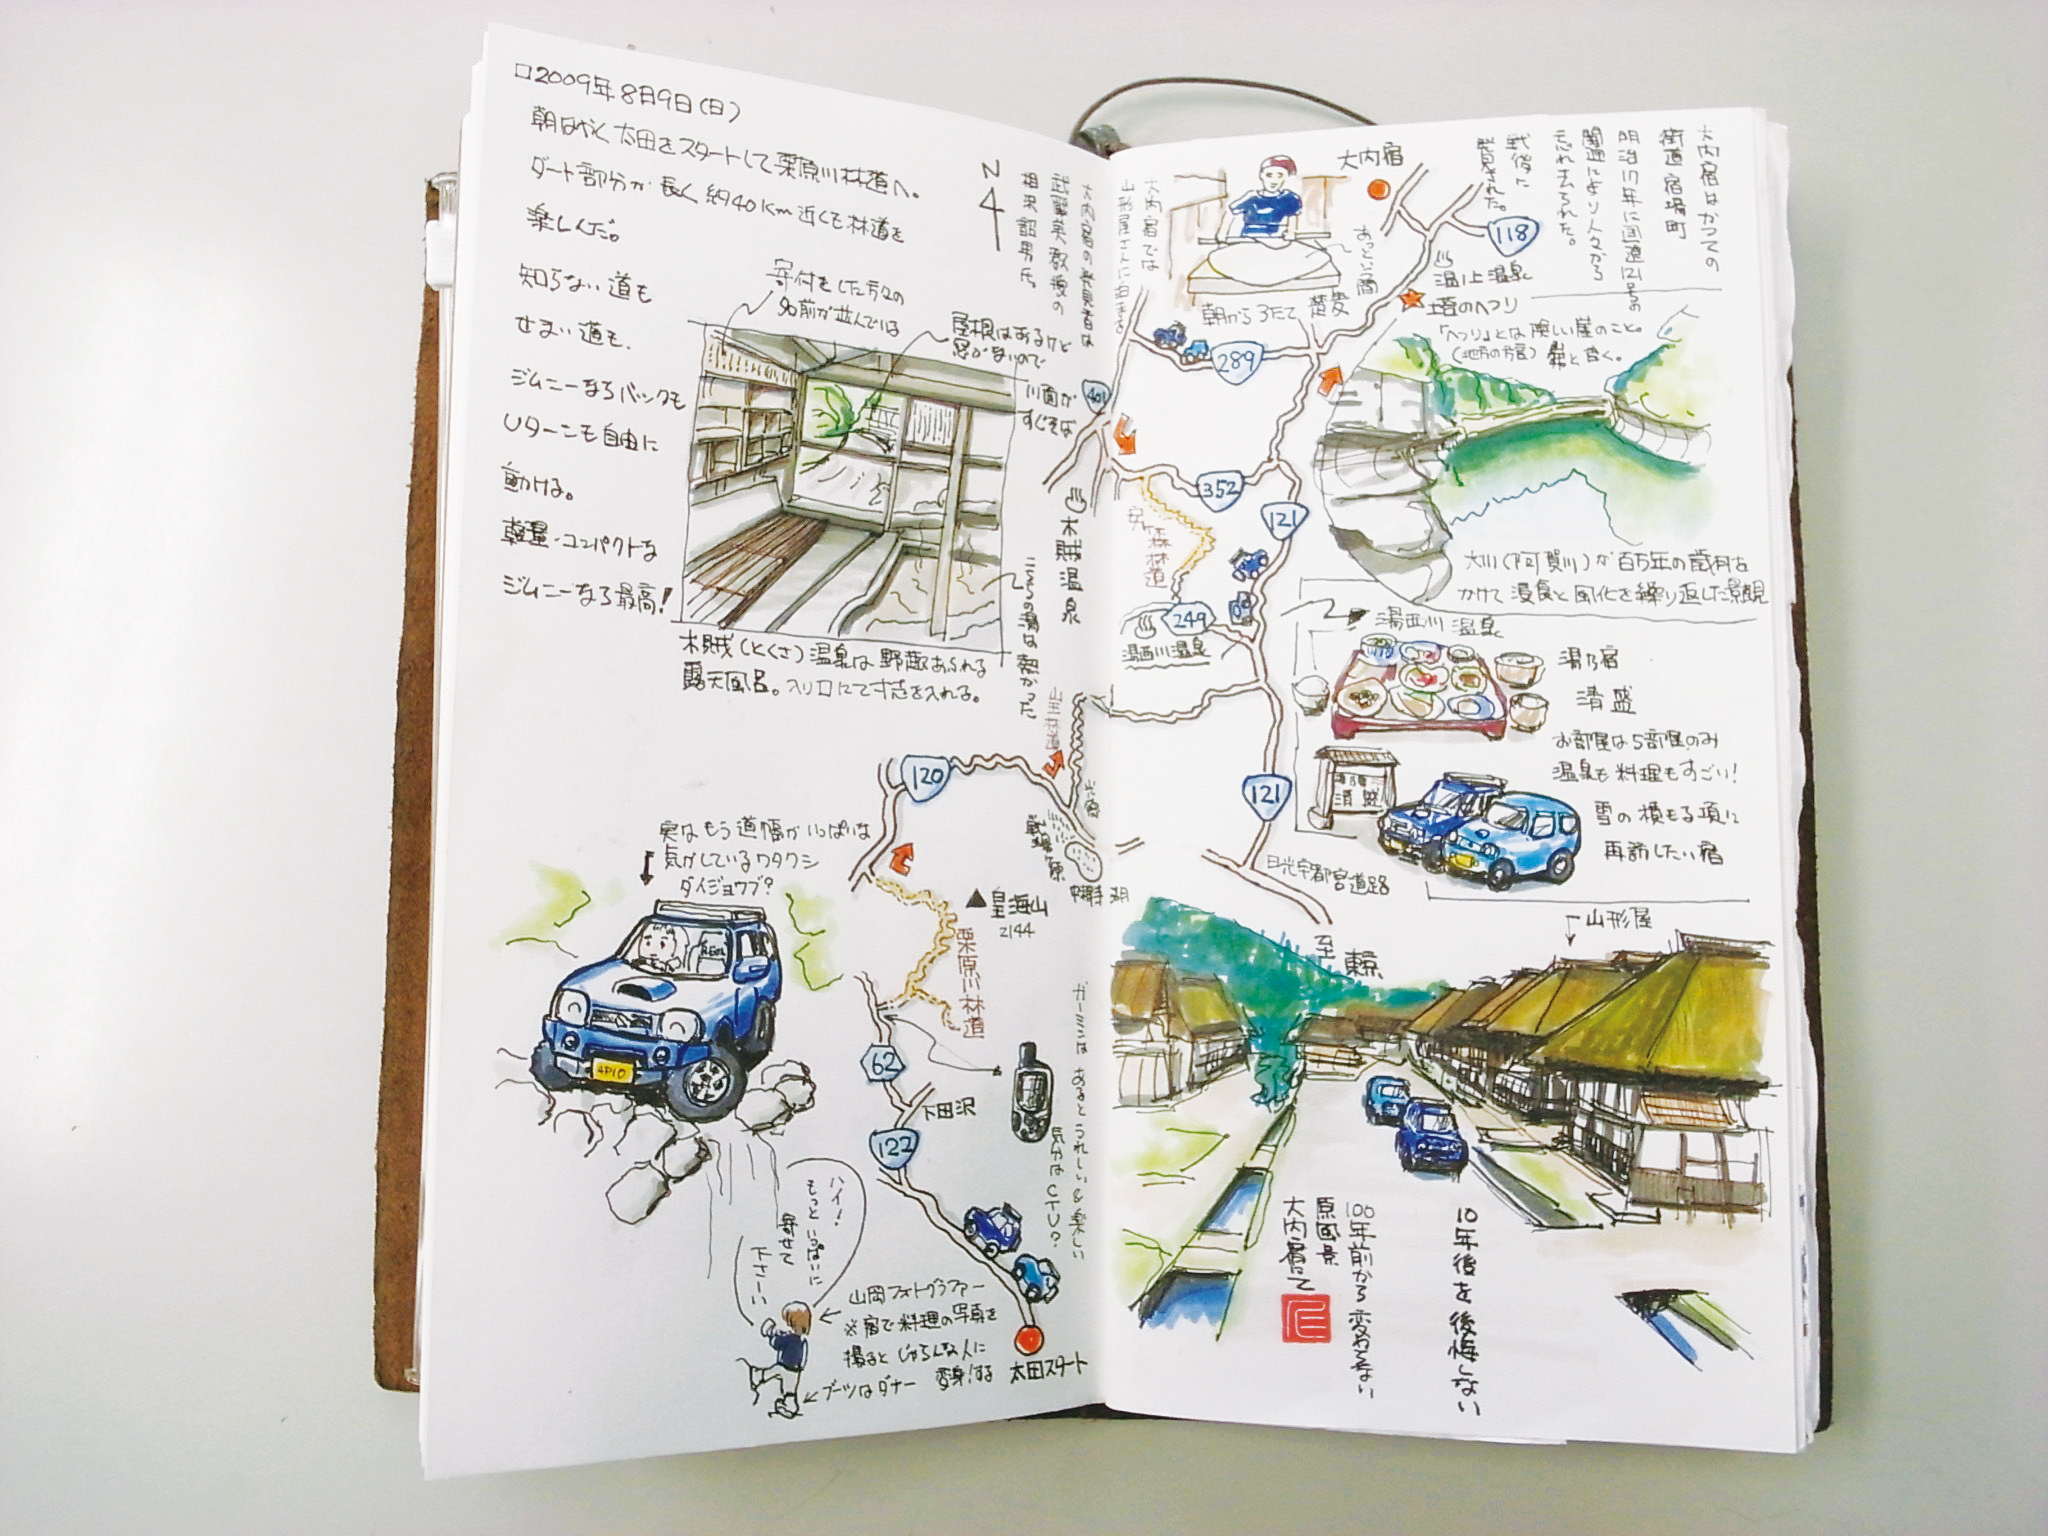 □2009年8月9日(日)
朝はやく太田をスタートして栗原川林道へ。
ダート部分が長く約40Km近くも林道を
楽しんだ。
知らない道も
せまい道も、
ジムニーならバックも
Uターンも自由に
動ける。
軽量・コンパクトな
ジムニーなら最高!
寄付をした方々の
名前が並んでいる
屋根はあるけど
窓がないので
川面が
すぐそば
こちらの湯は熱かった
木賊(とくさ)温泉は野趣あふれる
露天風呂。入り口にて寸志を入れる。
N
大内宿の発見者は
武蔵美教授の
相沢韶男氏。
401
木賊温泉
山王林道
120
光徳
戦場ヶ原
中禅寺湖
皇海山
2144
栗原川林道
62
下田沢
122
太田スタート
ガーミンは あるとうれしい&楽しい
気分はCTU?
実はもう道幅がいっぱいな
気がしているワタクシ
ダイジョウブ?
APIO
ハイ!
もっといっぱいに
寄せて
下さーい
山岡フォトグラファー
※宿で料理の写真を
撮るとじゃらんな人に
変身!する
ブーツはダナー
大内宿はかつての
街道宿場町
明治17年に国道121号の
開通により人々から
忘れ去られた。
戦後に
発見された。
大内宿では
山形屋さんに
大内宿
あっという間
朝から3たて
蕎麦
118
湯ノ上温泉
塔のへつり
「へつり」とは険しい崖のこと。
(地方の方言)
と書く。
289
352
121
安ヶ森林道
249
湯西川温泉
121
日光宇都宮道路
至東京
大川(阿賀川)が百万年の歳月を
かけて浸食と風化を繰り返した景観
湯西川温泉
湯乃宿
清盛
お部屋は5部屋のみ
温泉も料理もすごい!
雪の積もる頃に
再訪したい宿
清盛
山形屋
10年後を後悔しない
100年前から変わらない
原風景
大内宿にて